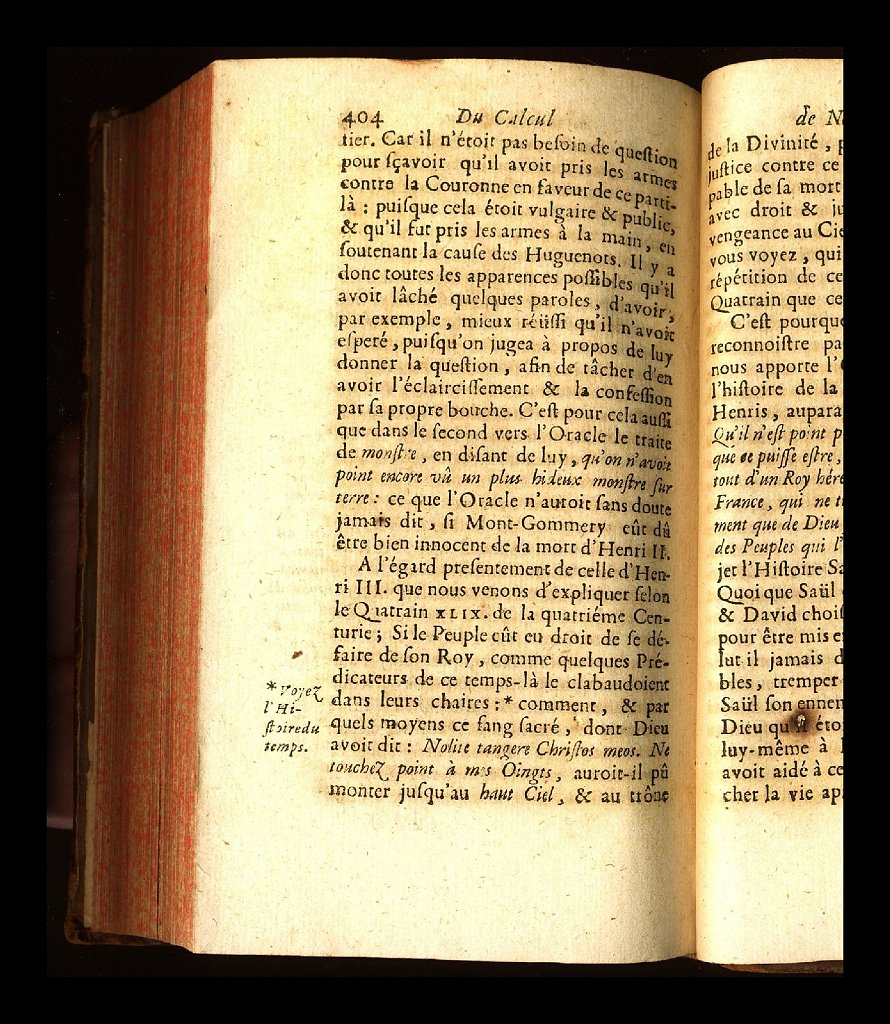 404 Du Calcul
tier. Car il n'étoit pas beſoin de queſtion
pour ſçavoir qu'il avoit pris les armes
contre la Couronne en faveur de ce parti-
là : puiſque cela étoit vulgaire & public,
& qu'il fut pris les armes à la main, en
ſoutenant la cauſe des Huguenots. Il y a
donc toutes les apparences poſſibles qu'il
avoit lâché quelques paroles, d'avoir,
par exemple, mieux réüſſi qu'il n'avoit
eſperé, puiſqu'on jugea à propos de luy
donner la queſtion, afin de tâcher d'en
avoir l'éclairciſſement & la confeſſion
par ſa propre bouche. C'eſt pour cela auſſi
que dans le ſecond vers l'Oracle le traite
de monſtre, en diſant de luy, qu'on n'avoit
point encore vû un plus hideux monſtre ſur
terre : ce que l'Oracle n'auroit ſans doute
jamais dit, ſi Mont-Gommery eût dû
être bien innocent de la mort d'Henri II.
A l'égard preſentement de celle d'Hen-
ri III. que nous venons d'expliquer ſelon
le Quatrain XLIX. de la quatriéme Cen-
turie ; Si le Peuple eût eu droit de ſe dé-
faire de ſon Roy, comme quelques Pré-
dicateurs de ce temps-là le clabaudoient
dans leurs chaires :* comment, & par
quels moyens ce ſang ſacré, dont Dieu
avoit dit : Nolite tangere Chriſtos meos. Ne
touchez point à mes Oingts, auroit-il pû
monter juſqu'au haut Ciel, & au trône
* Voyez
l'Hi-
ſtoire du
temps.
de N
de la Divinité, p
juſtice contre ce
pable de ſa mort
avec droit & ju
vengeance au Cie
vous voyez, qui
répétition de ce
Quatrain que ce
C'eſt pourque
reconnoiſtre pa
nous apporte l'
l'hiſtoire de la
Henris, aupara
Qu'il n'eſt point p
que ce puiſſe eſtre,
tout d'un Roy hére
France, qui ne t
ment que de Dieu
des Peuples qui l'
jet l'Hiſtoire Sa
Quoi que Saül
& David choiſ
pour être mis e
lut il jamais d
bles, tremper
Saül ſon ennem
Dieu qu'il éto
luy-même à
avoit aidé à ce
cher la vie ap